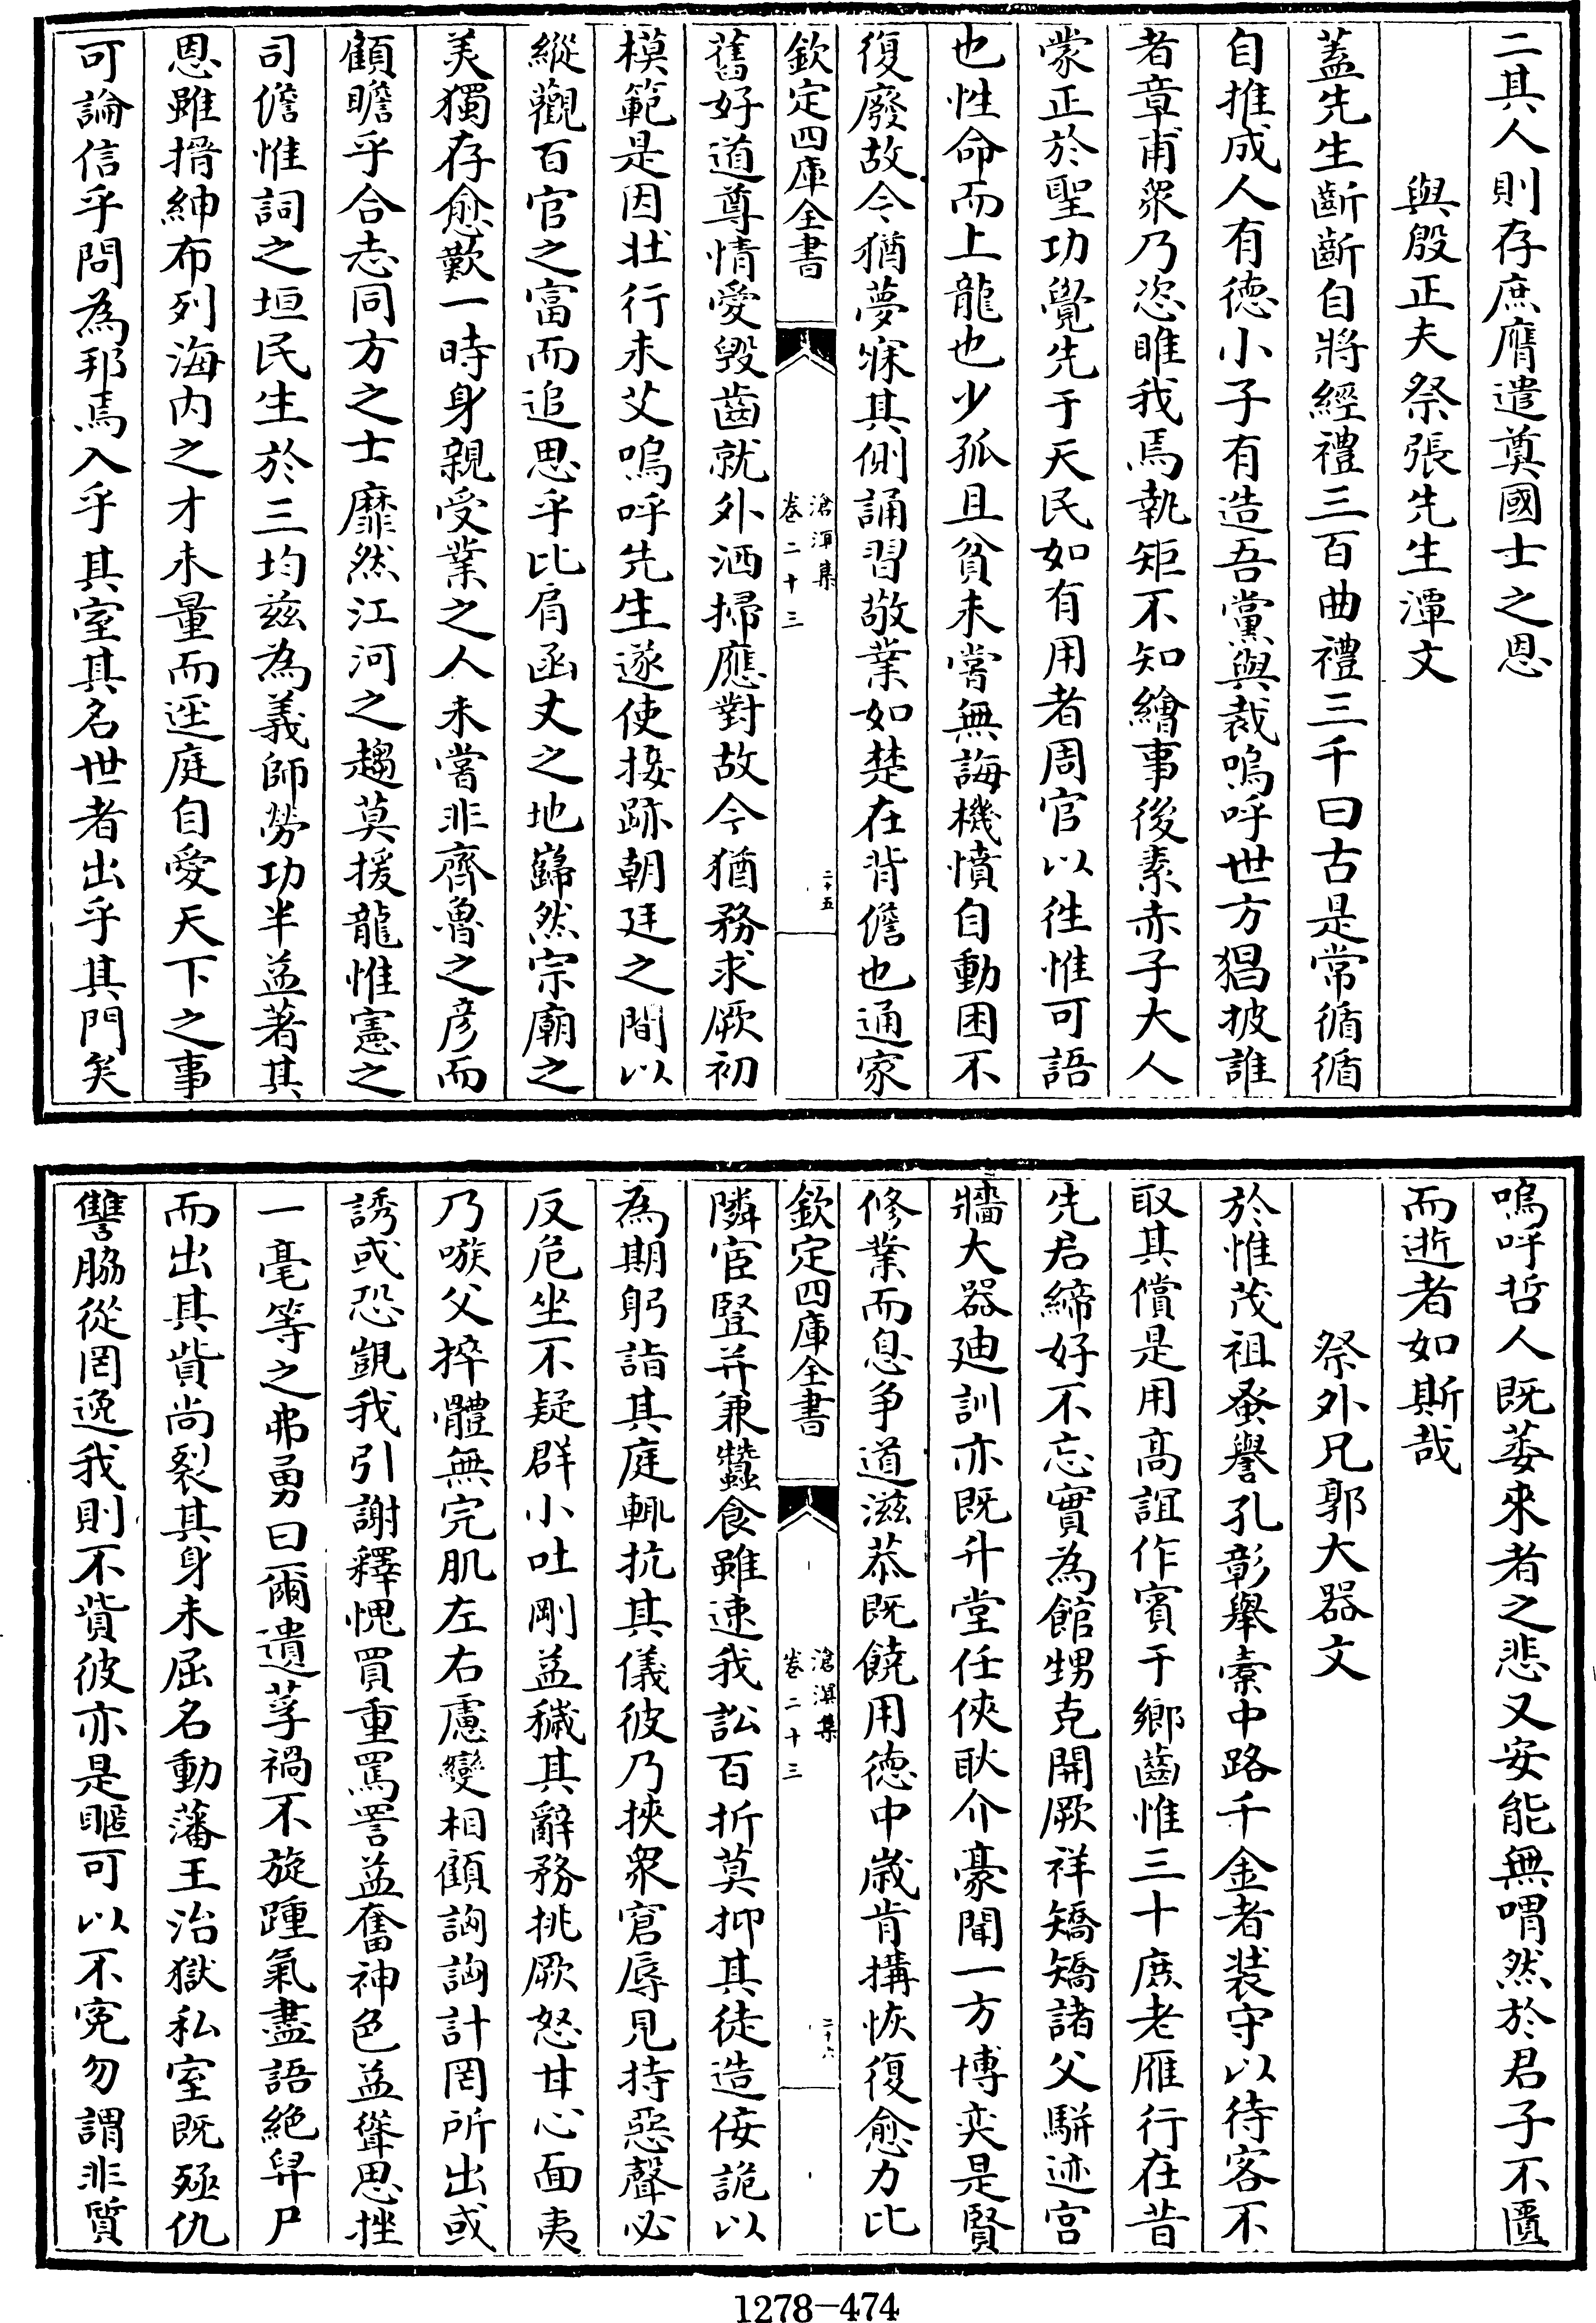 二其人則存庶膺遣奠國士之恩
與殷正夫祭張先生潭文
蓋先生齗齗自將經禮三百曲禮三千曰古是常循循
自推成人有德小子有造吾黨與裁嗚呼世方猖披誰
者章甫衆乃恣睢我焉執矩不知繪事後素赤子大人
蒙正於聖功覺先于天民如有用者周官以徃惟可語
也性命而上龍也少孤且貧未嘗無誨機憤自動困不
復廢故今猶夢寐其側誦習敬業如楚在背儋也通家
欽定四庫全書
滄溟集
卷二十三
二十五
舊好道尊情愛毀齒就外洒掃應對故今猶務求厥初
模範是因壯行未艾嗚呼先生遂使接跡朝廷之間以
縱觀百官之富而追思乎比肩函丈之地巋然宗廟之
美獨存愈歎一時身親受業之人未嘗非齊魯之彦而
顧瞻乎合志同方之士靡然江河之趨莫援龍惟憲之
司儋惟詞之垣民生於三均兹為義師勞功半益著其
恩雖搢紳布列海内之才未量而逕庭自愛天下之事
可論信乎問為邦焉入乎其室其名世者出乎其門矣
嗚呼哲人既萎來者之悲又安能無喟然於君子不匱
而逝者如斯哉
祭外兄郭大器文
於惟茂祖蚤譽孔彰舉橐中路千金者装守以待客不
取其償是用髙誼作賓于鄉齒惟三十庶老雁行在昔
先君締好不忘實為館甥克開厥祥矯矯諸父駢迹宫
牆大器廸訓亦既升堂任俠耿介豪聞一方博奕是賢
修業而息争道滋恭既饒用德中歳肯搆恢復愈力比
欽定四庫全書
滄溟集
卷二十三
二十六
隣宦豎并兼蠶食雖速我訟百折莫抑其徒造侫詭以
為期躬詣其庭輒抗其儀彼乃挾衆窘辱見持惡聲必
反危坐不疑群小吐剛益穢其辭務挑厥怒甘心面夷
乃嗾父捽體無完肌左右慮變相顧詾詾計罔所出或
誘或恐覬我引謝釋愧買重罵詈益奮神色益聳思挫
一毫等之弗勇曰爾遺孽禍不旋踵氣盡語絶舁尸
而出其貲尚裂其身未屈名動藩王治獄私室既殛仇
讐脇從罔逸我則不貲彼亦是暱可以不寃勿謂非質
1278-474